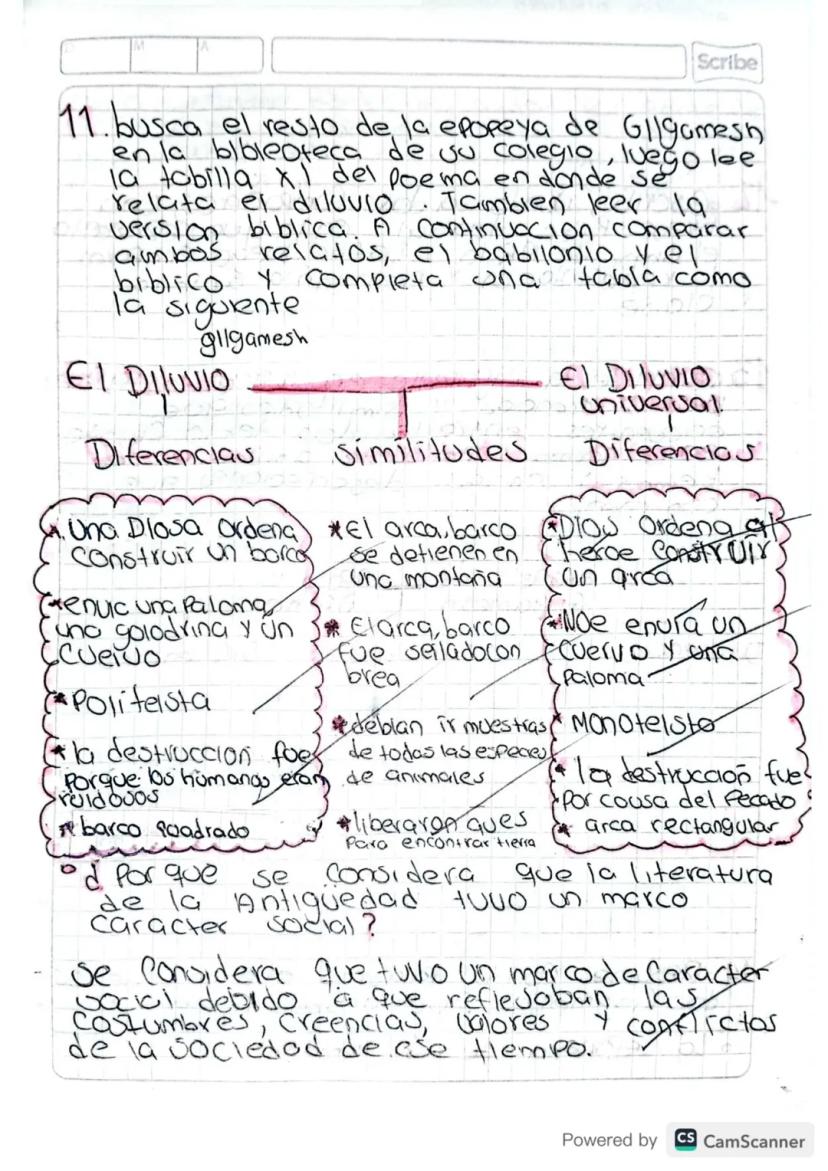 M
A
Scribe
11. busca el resto de la epopeya de Gilgamesh
en la biblioteca de su colegio, luego lee
la tabilla XI del poema en donde se
relata el diluvio. Tambien leer la
version biblica. A continuacion comparar
ambos relatos, el babilonio y el
biblico y completa una tabla como
la siguiente
gilgamesh
El Diluvio
El Diluvio
universal
Diferencias
similitudes
Diferencias
* Una Diosa ordena
construir un barco
* envia una Paloma,
una golodrina y un
cuervo
* Politeista
* la destruccion fue
Porque los humanos eran
ruidosos
* barco quadrado
* El arca, barco
se detienen en
una montaña
* El arca, barco
fue sellado con
brea
* debian ir muestras
de todas las especies
de animales
* liberaron aves
Para encontrar tierra
* Dios ordena al
heroe construir
un arca
* Noe envia un
cuervo y una
Paloma
* Monoteista
* la destrucción fue
Por causa del Pecado
* arca rectangular
¿ Por que se considera que la literatura
de la Antigüedad tuvo un marco
caracter social?
se considera que tuvo un marco de caracter
social debido a que reflejaban las
costumbres, creencias, valores y conflictos
de la sociedad de ese tiempo.
Powered by CS CamScanner